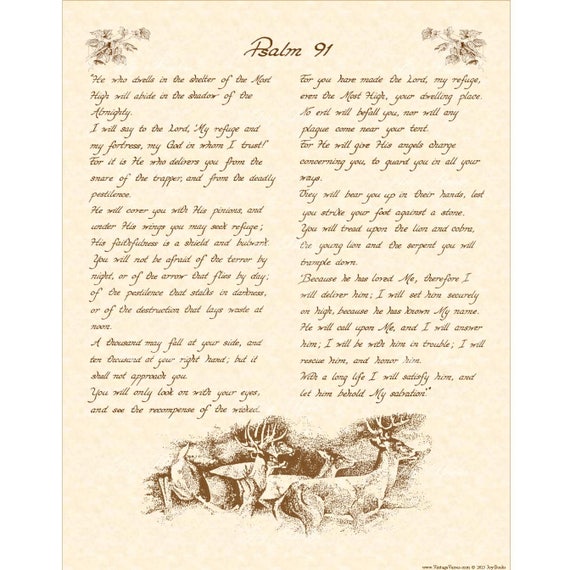 Psalm 91
"He who dwells in the shelter of the Most
High will abide in the shadow of the
Almighty.
I will say to the Lord, 'My refuge and
my fortress, my God in whom I trust!'
For it is He who delivers you from the
snare of the trapper, and from the deadly
pestilence.
He will cover you with His pinions, and
under His wings you may seek refuge;
His faithfulness is a shield and bulwark.
You will not be afraid of the terror by
night, or of the arrow that flies by day;
of the pestilence that stalks in darkness,
or of the destruction that lays waste at
noon.
A thousand may fall at your side, and
ten thousand at your right hand; but it
shall not approach you.
You will only look on with your eyes,
and see the recompense of the wicked.
For you have made the Lord, my refuge,
even the Most High, your dwelling place.
No evil will befall you, nor will any
plague come near your tent.
For He will give His angels charge
concerning you, to guard you in all your
ways.
They will bear you up in their hands, lest
you strike your foot against a stone.
You will tread upon the lion and cobra,
the young lion and the serpent you will
trample down.
'Because he has loved Me, therefore I
will deliver him; I will set him securely
on high, because he has known My name.
He will call upon Me, and I will answer
him; I will be with him in trouble; I will
rescue him, and honor him.
With a long life I will satisfy him, and
let him behold My salvation.'"
www.VintageVerses.com © 2013 Joy